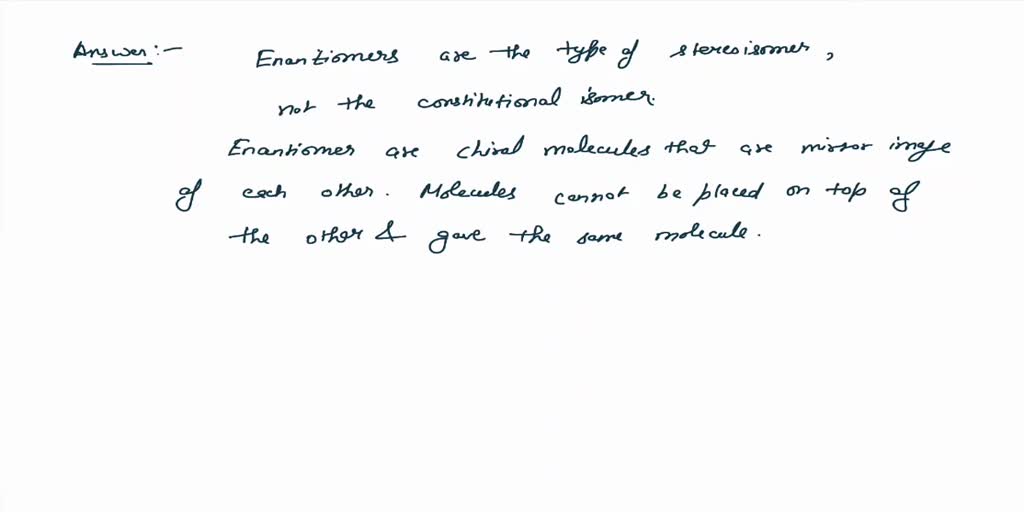 Answer:-
Enantiomers are the type of stereoisomer,
not the constitutional isomer.
Enantiomer are chiral molecules that are mirror image
of each other. Molecules cannot be placed on top of
the other & gave the same molecule.